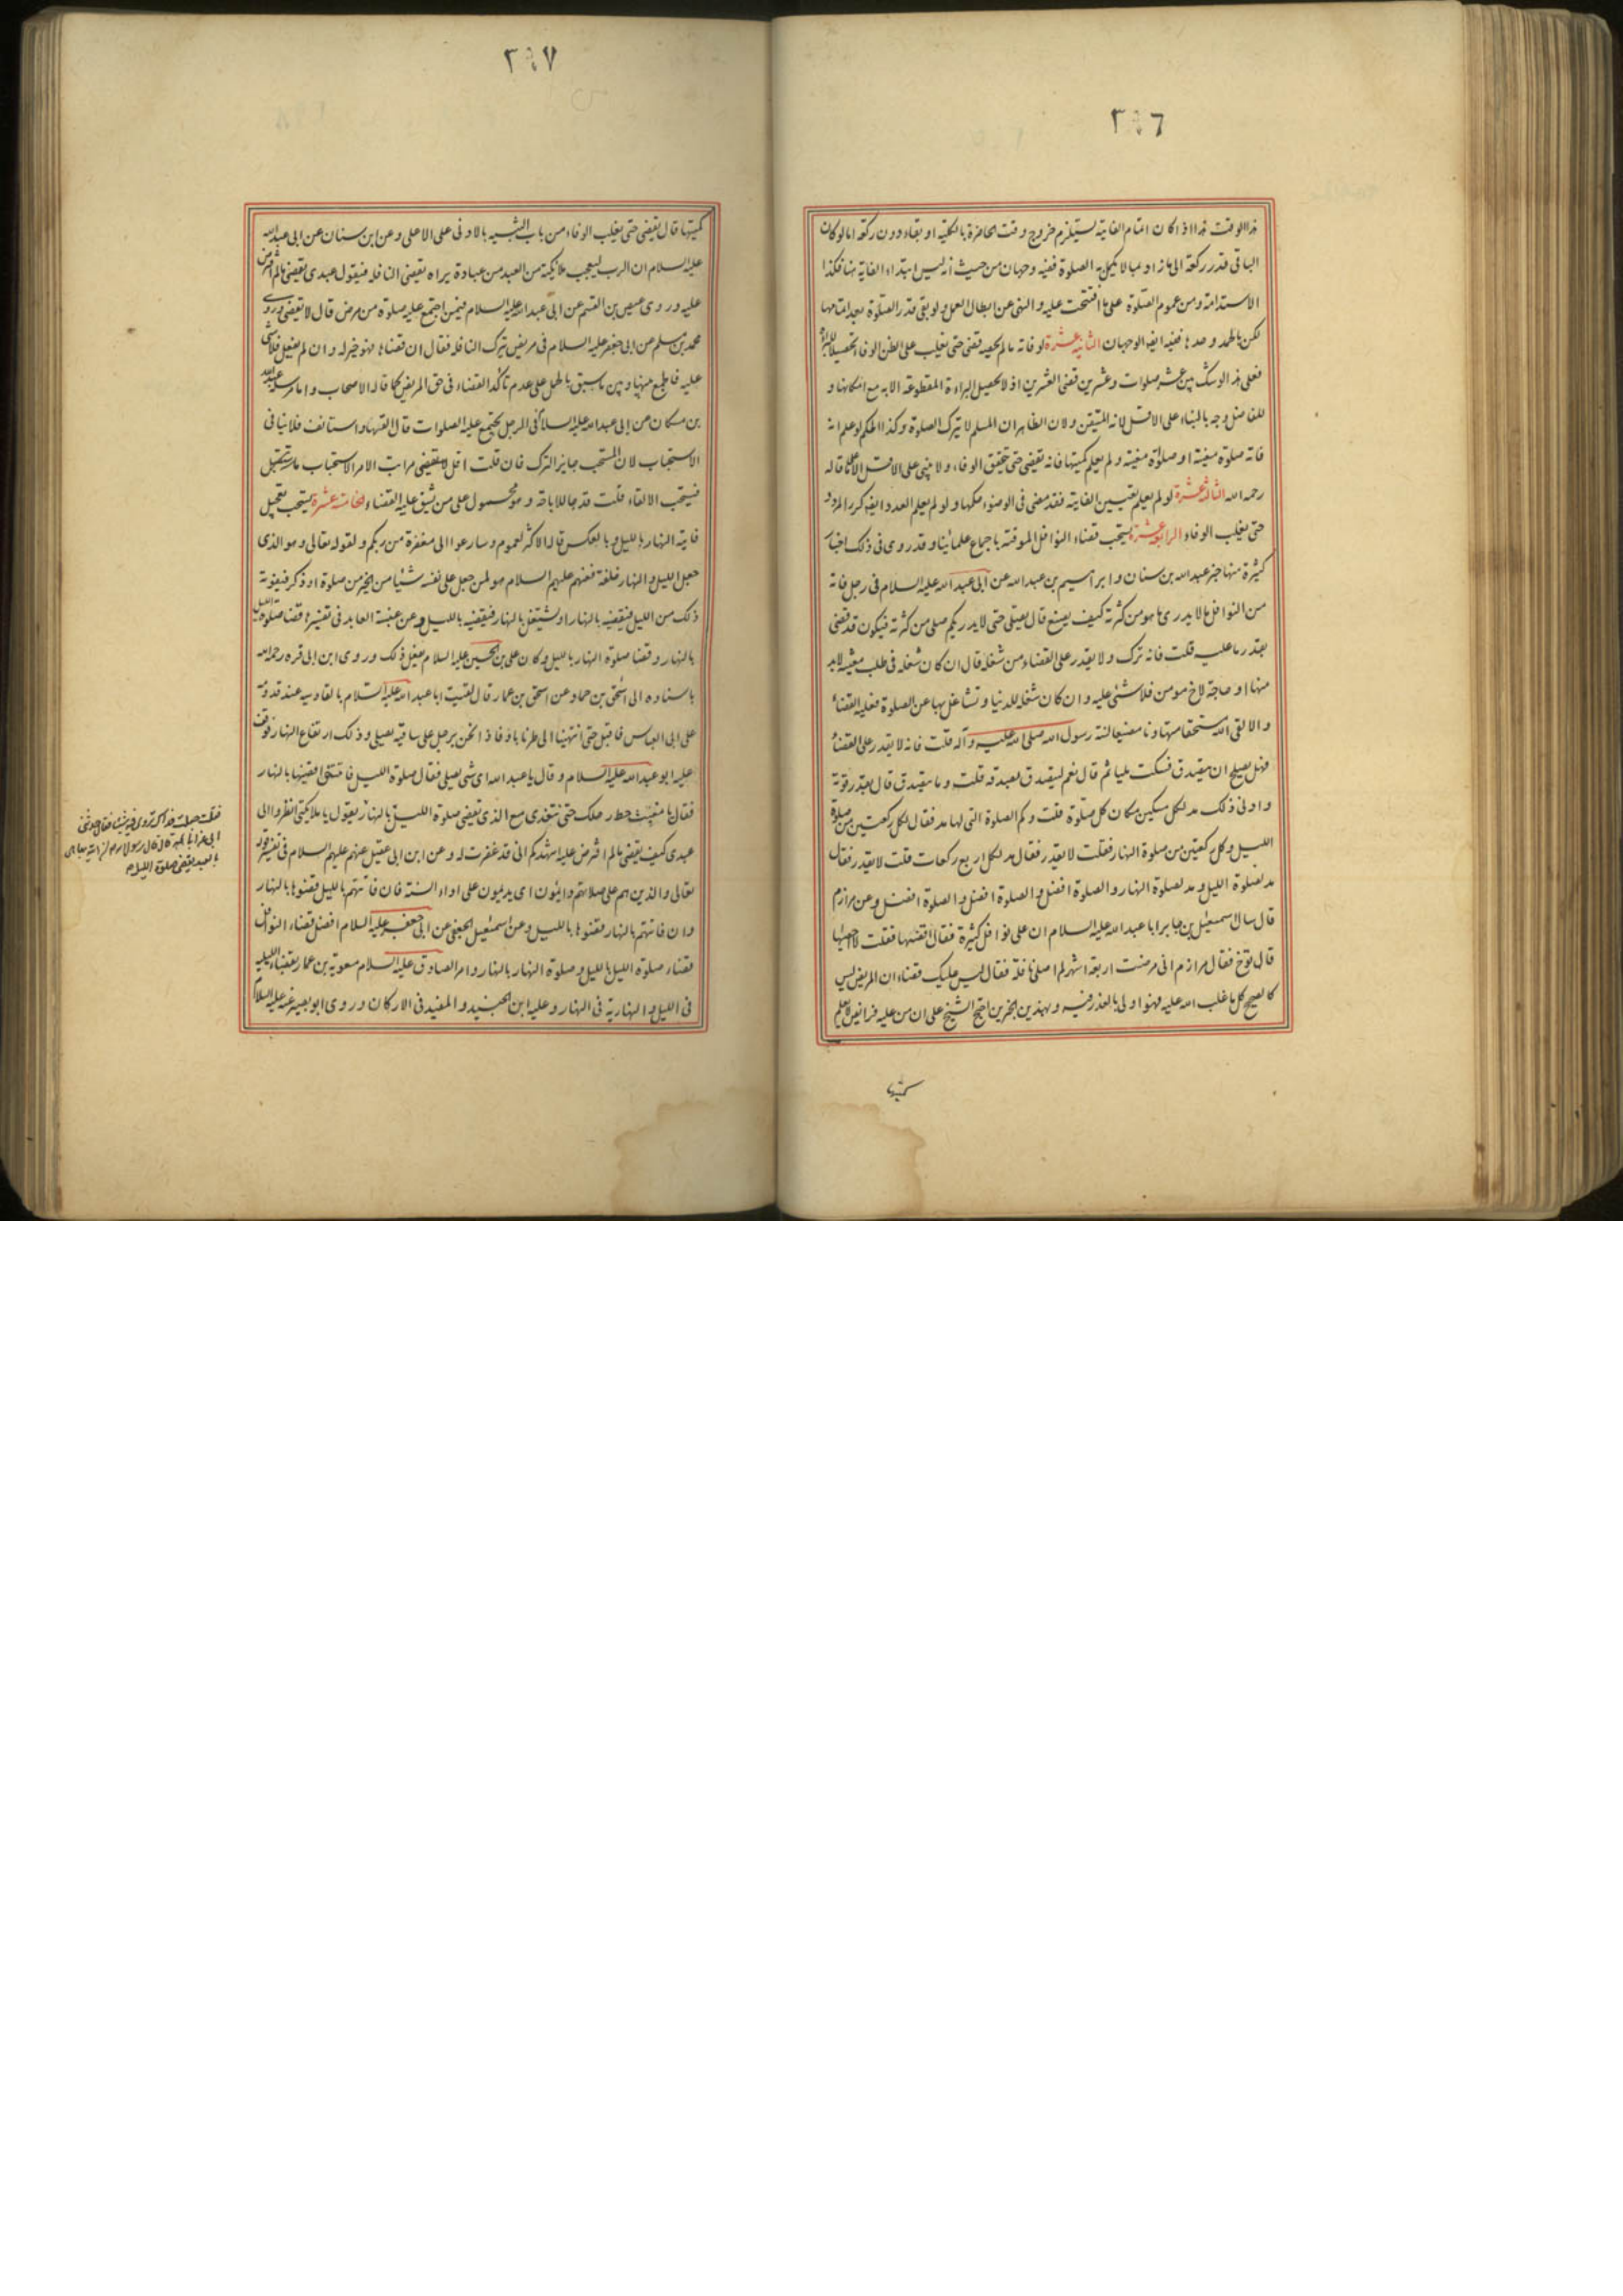 ٣٤٦
هذا الوقت هذا اذا كان اتمام الفايتة يستلزم خروج وقت الحاضرة بالكلية او بقاء دون ركعة اما لو كان
الباقى قدر ركعة الى ما زاد مما لا يكمل به الصلوة ففيه وجهان من حيث انه ليس ابتداء الفايتة هنا فكذا
الاستدامة ومن عموم الصلوة على ما افتتحت عليه والنهى عن ابطال العمل ولو بقى قدر الصلوة بعد اتمامها
لكن بالحمد وحدها ففيه ايضا الوجهان الثانية عشرة لو فاته ما لم يحصه قضى حتى يغلب على الظن الوفا تحصيلا للبراءة
فعلى هذا لو شك بين عشر صلوات وعشرين قضى العشرين اذ لا تحصل البراءة المقطوعة الا به مع امكانها و
للفاضل وجه بالبناء على الاقل لانه المتيقن ولان الظاهر ان المسلم لا يترك الصلوة وكذا الحكم لو علم انه
فاته صلوة معينة او صلوات معينة ولم يعلم كميتها فانه يقضى حتى يتحقق الوفاء ولا يبنى على الاقل الا على ما قاله
رحمه الله الثالثة عشرة لو لم يعلم تعيين الفايتة فقد مضى فى الوضوء حكمها ولو لم يعلم العدد ايضا كرر المردد
حتى يغلب الوفاء الرابعة عشرة يستحب قضاء النوافل الموقتة باجماع علمائنا وقد روى فى ذلك اخبار
كثيرة منها خبر عبدالله بن سنان وابراهيم بن عبدالله عن ابى عبدالله عليه السلام فى رجل فاته
من النوافل ما لا يدرى ما هو من كثرته كيف يصنع قال يصلى حتى لا يدرى كم صلى من كثرته فيكون قد قضى
بقدر ما عليه قلت فانه ترك ولا يقدر على القضاء من شغله قال ان كان شغله فى طلب معيشة لابد
منها او حاجة لاخ مومن فلا شئ عليه وان كان شغله للدنيا وتشاغل بها عن الصلوة فعليه القضاء
والا لقى الله مستخفا متهاونا مضيعا لسنة رسول الله صلى الله عليه وآله قلت فانه لا يقدر على القضاء
فهل يصلح ان يتصدق فسكت مليا ثم قال نعم ليتصدق بصدقة قلت وما يتصدق قال بقدر قوته
وادنى ذلك مد لكل مسكين مكان كل صلوة قلت وكم الصلوة التى لها مد فقال لكل ركعتين من صلوة
الليل وكل ركعتين من صلوة النهار فقلت لا يقدر فقال مد لكل اربع ركعات قلت لا يقدر فقال
مد لصلوة الليل ومد لصلوة النهار والصلوة افضل والصلوة افضل والصلوة افضل وعن مرازم
قال سال اسمعيل بن جابر ابا عبدالله عليه السلام ان على نوافل كثيرة فقال اقضها فقلت لا احصيها
قال توخ فقال مرازم انى مرضت اربعة اشهر لم اصل نافلة فقال ليس عليك قضاء ان المريض ليس
كالصحيح كل ما غلب الله عليه فهو اولى بالعذر فيه وبهذين الخبرين احتج الشيخ على ان من عليه فرائض لا يعلم
كميتها
٣٤٧
كميتها قال يقضى حتى يغلب الوفاء من باب التنبيه بالادنى على الاعلى وعن ابن سنان عن ابى عبدالله
عليه السلام ان الرب ليعجب ملائكته من العبد من عبادة يراه يقضى النافلة فيقول عبدى يقضى ما لم افترض
عليه وروى عيص بن القسم عن ابى عبدالله عليه السلام فيمن اجتمع عليه صلوة من مرض قال لا يقضى وروى
محمد بن مسلم عن ابى جعفر عليه السلام فى مريض ترك النافلة فقال ان قضاها فهو خير له وان لم يفعل فلا شئ
عليه فالجمع بينها وبين ما سبق بالحمل على عدم تاكد القضاء فى حق المريض كما قاله الاصحاب واما مرسل عبدالله
بن مسكان عن ابى عبدالله عليه السلام فى الرجل يجتمع عليه الصلوات قال القها واستانف فلا ينافى
الاستحباب لان المستحب جايز الترك فان قلت اقل ما يقتضى مراتب الامر الاستحباب
فيستحب الالقاء قلت قد جاء للاباحة وهو محمول على من شق عليه القضاء الخامسة عشرة يستحب تعجيل
فايتة النهار بالليل وبالعكس قاله الاكثر لعموم وسارعوا الى مغفرة من ربكم ولقوله تعالى وهو الذى
جعل الليل والنهار خلفة فعنهم عليهم السلام هو لمن جعل على نفسه شيئا من الخير من صلوة او ذكر فيفوته
ذلك من الليل فيقضيه بالنهار او يشتغل بالنهار فيقضيه بالليل وعن عنبسة العابد فى تفسيرها قضاء صلوة الليل
بالنهار وقضا صلوة النهار بالليل وكان على بن الحسين عليه السلام يفعل ذلك وروى ابن ابى قره رحمه الله
باسناده الى اسحق بن حماد عن اسحق بن عمار قال لقيت ابا عبدالله عليه السلام بالقادسيه عند قدومه
على ابى العباس فاقبل حتى انتهينا الى طرنا باذ فاذا نحن برجل على ساقيه يصلى وذلك ارتفاع النهار فوقف
عليه ابو عبدالله عليه السلام وقال يا عبدالله اى شئ تصلى فقال صلوة الليل فاتتنى اقضيها بالنهار
فقال يا معتب حط رحلك حتى نتغدى مع الذى يقضى صلوة الليل بالنهار يقول يا ملائكتى انظروا الى
عبدى كيف يقضى ما لم افترض عليه اشهدكم انى قد غفرت له وعن ابن ابى عقيل عنهم عليهم السلام فى تفسير قوله
تعالى والذين هم على صلاتهم دائمون اى يديمون على اداء السنة فان فاتتهم بالليل قضوها بالنهار
وان فاتتهم بالنهار قضوها بالليل وعن اسمعيل الجعفى عن ابى جعفر عليه السلام افضل قضاء النوافل
قضاء صلوة الليل بالليل وصلوة النهار بالنهار وامر الصادق عليه السلام معوية بن عمار بقضاء الليلية
فى الليل والنهارية فى النهار وعليه ابن الجنيد والمفيد فى الاركان وروى ابو بصير عنه عليه السلام
فقلت جعلت فداك تروى فيه شيئا فقال حدثنى
ابى عن ابائه قال قال رسول الله ان الله يباهى
بالعبد يقضى صلوة الليل